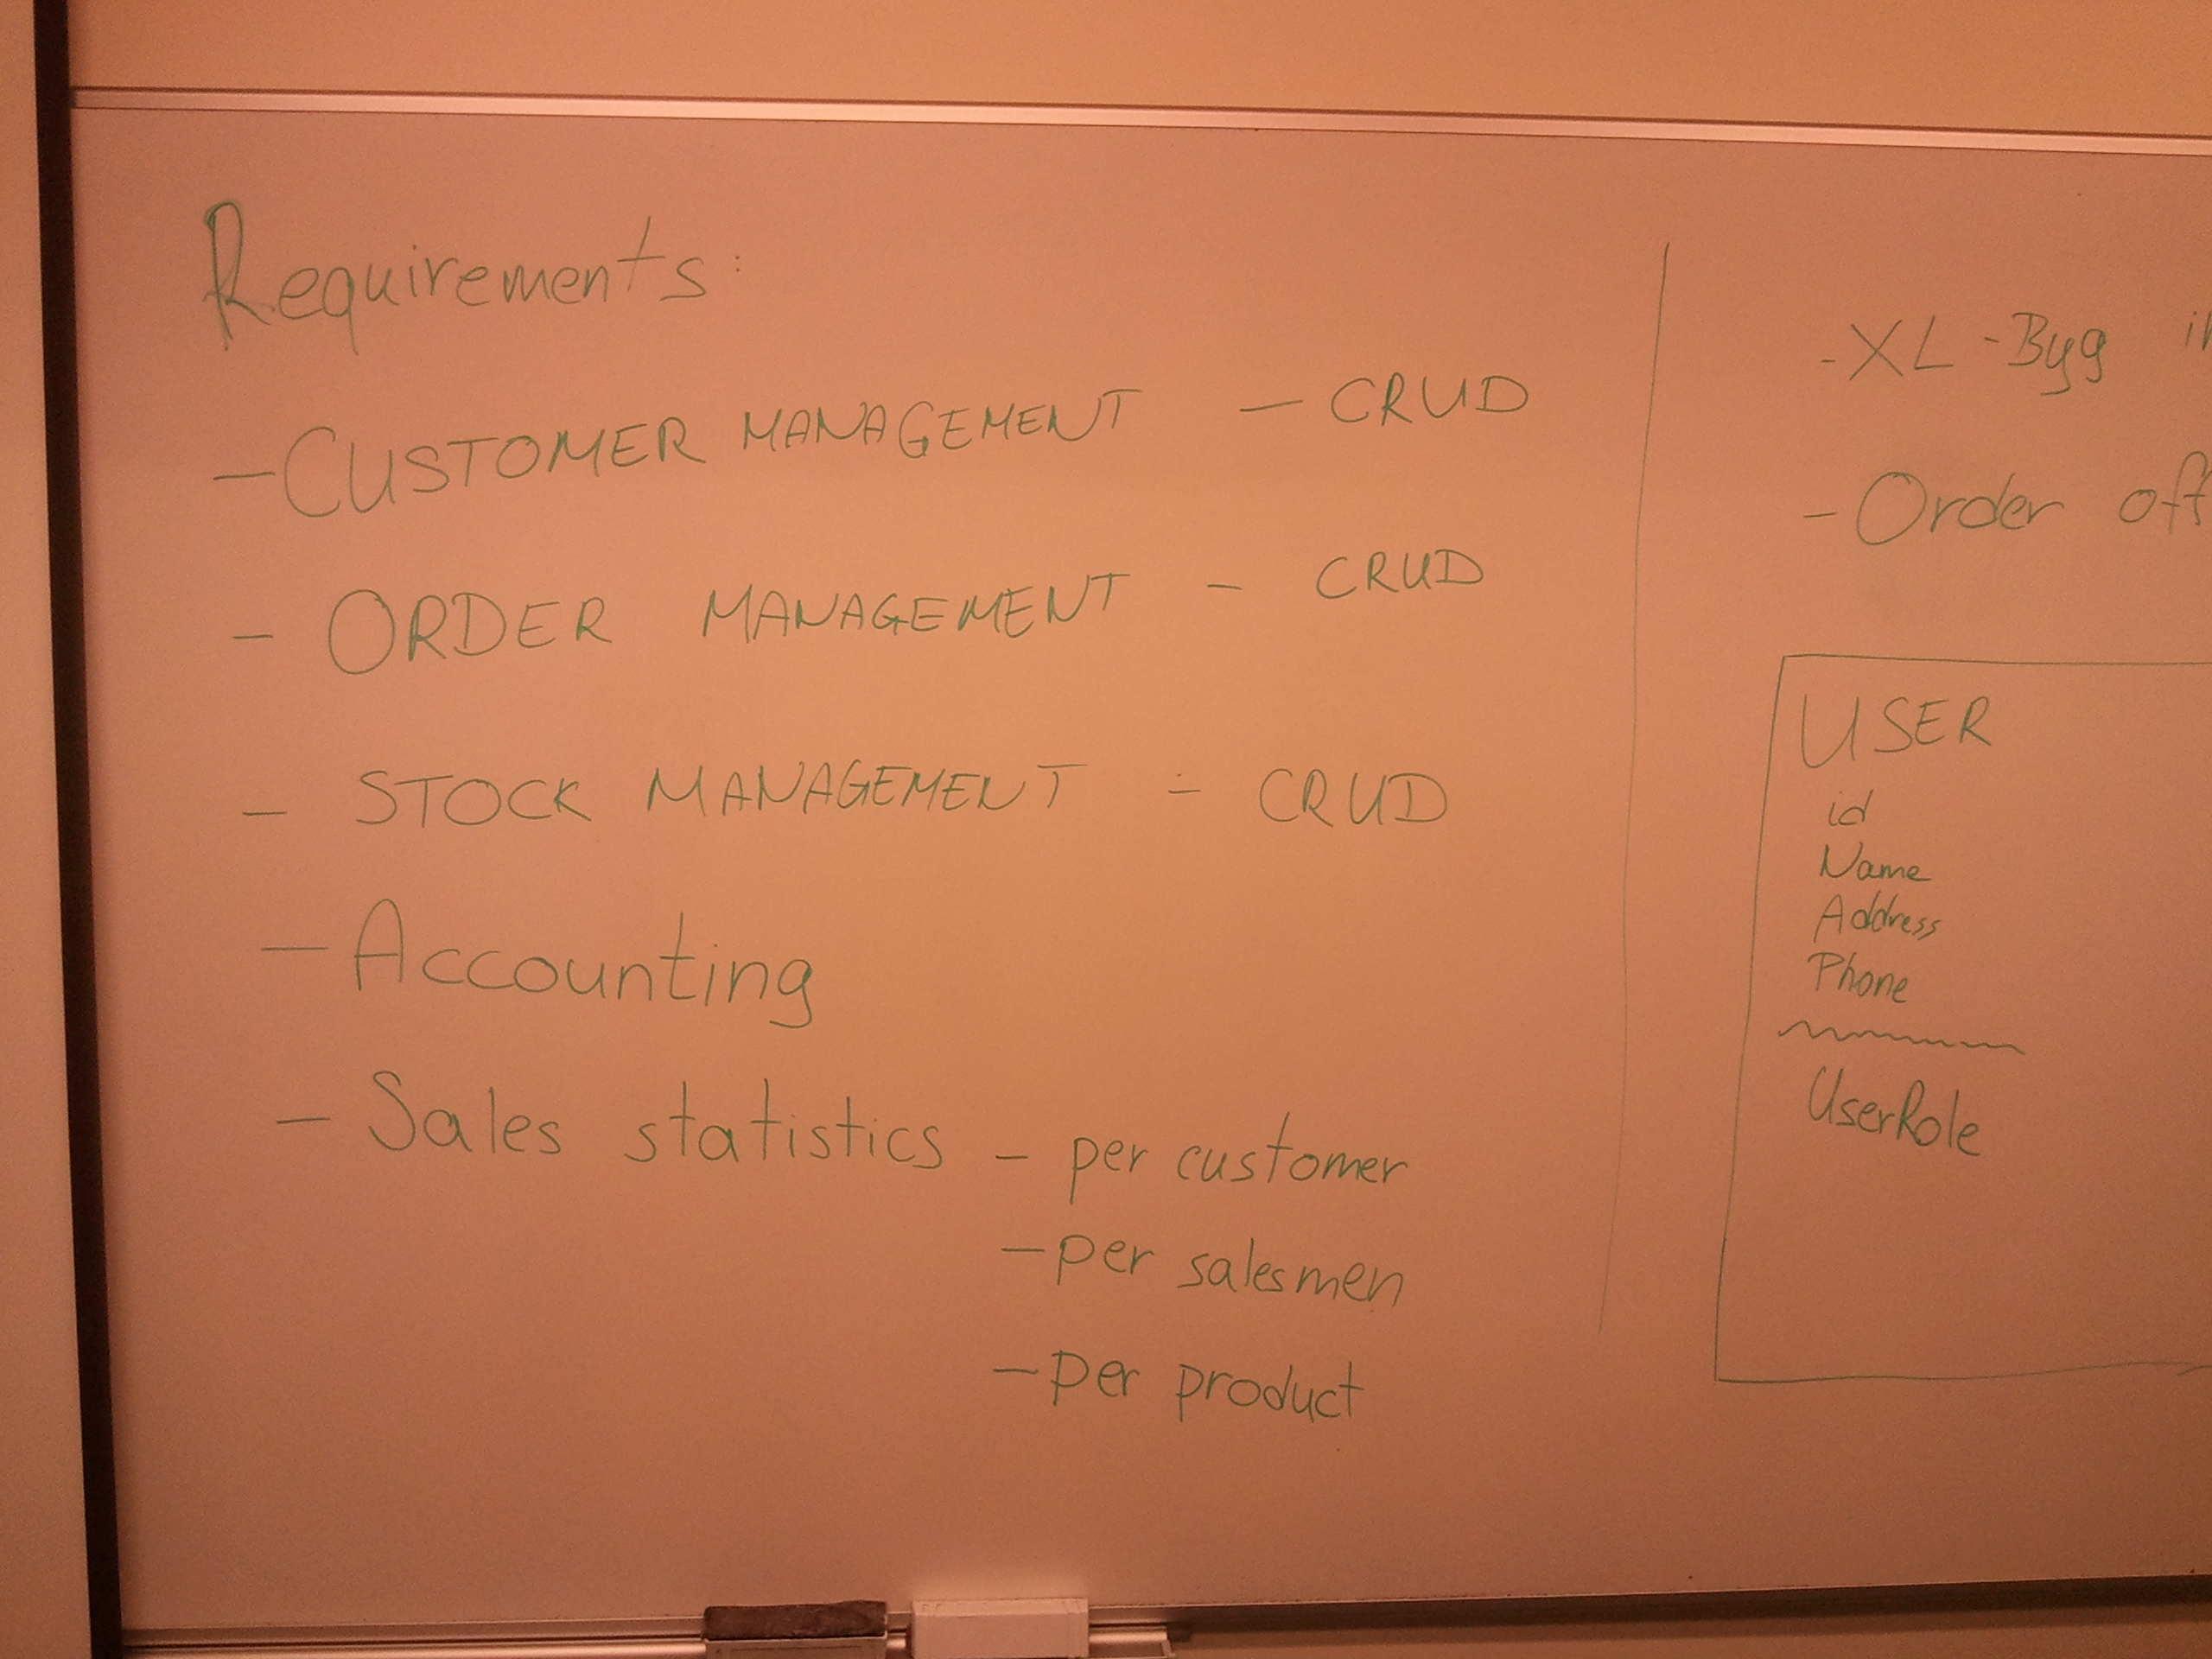 Requirements:
- CUSTOMER MANAGEMENT - CRUD
- ORDER MANAGEMENT - CRUD
- STOCK MANAGEMENT - CRUD
- Accounting
- Sales statistics - per customer
- per salesmen
- per product
- XL-Byg
- Order
USER
id
Name
Address
Phone
UserRole